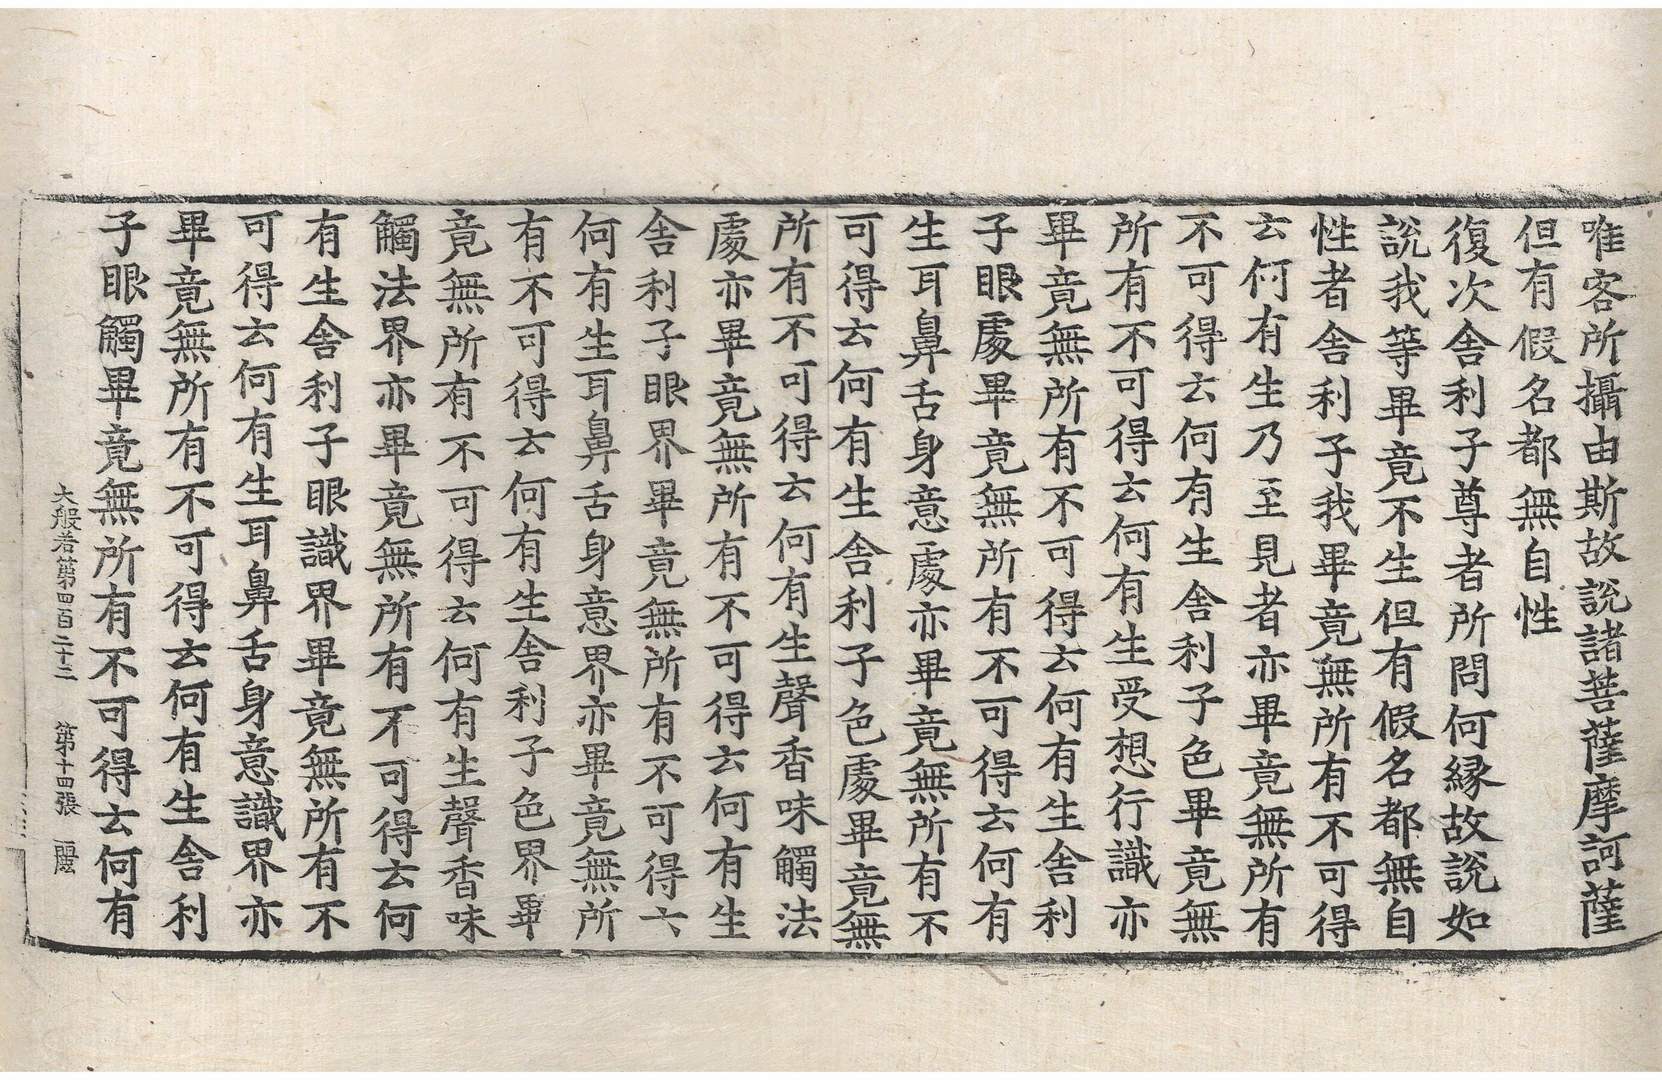 唯客所攝由斯故說諸菩薩摩訶薩
但有假名都無自性
復次舍利子尊者所問何緣故說如
說我等畢竟不生但有假名都無自
性者舍利子我畢竟無所有不可得
云何有生乃至見者亦畢竟無所有
不可得云何有生舍利子色畢竟無
所有不可得云何有生受想行識亦
畢竟無所有不可得云何有生舍利
子眼處畢竟無所有不可得云何有
生耳鼻舌身意處亦畢竟無所有不
可得云何有生舍利子色處畢竟無
所有不可得云何有生聲香味觸法
處亦畢竟無所有不可得云何有生
舍利子眼界畢竟無所有不可得云
何有生耳鼻舌身意界亦畢竟無所
有不可得云何有生舍利子色界畢
竟無所有不可得云何有生聲香味
觸法界亦畢竟無所有不可得云何
有生舍利子眼識界畢竟無所有不
可得云何有生耳鼻舌身意識界亦
畢竟無所有不可得云何有生舍利
子眼觸畢竟無所有不可得云何有
大般若第四百二十二 第十四張 麗